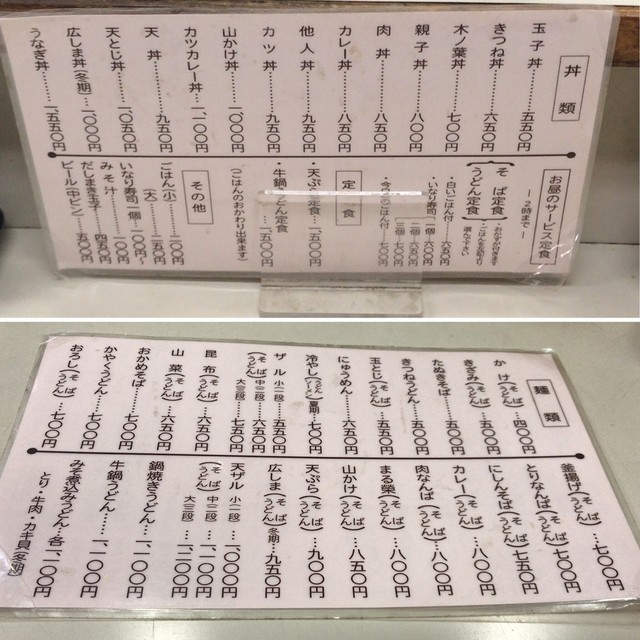 丼類
玉子丼……五五〇円
きつね丼……六五〇円
木ノ葉丼……七〇〇円
親子丼……八〇〇円
肉丼……八五〇円
カレー丼……八五〇円
他人丼……九五〇円
カツ丼……九五〇円
山かけ丼……一、〇〇〇円
カツカレー丼……一、一〇〇円
天丼……九五〇円
天とじ丼……一、〇五〇円
広しま丼(冬期)…一、〇〇〇円
うなぎ丼……一、五五〇円
お昼のサービス定食
―2時まで―
そば定食
うどん定食
・おかずが付きます
・ごはんを左記より選んで下さい
・白いごはん付…六五〇円
・いなり寿司一個…六〇〇円
二個…六五〇円
三個…七〇〇円
定食
・天ぷら定食……一、五〇〇円
・牛鍋うどん定食…一、五〇〇円
(ごはんのおかわり出来ます)
その他
ごはん(小)
(大)
いなり寿司一個
みそ汁
だしまき玉子
ビール(中ビン)
麺類
かけ(そば うどん)…四〇〇円
きざみ(そば うどん)…五〇〇円
たぬきそば……五〇〇円
きつねうどん……五〇〇円
玉とじ(そば うどん)…五五〇円
にゅうめん……六五〇円
冷やし(そば うどん)夏期…七〇〇円
ザル 小一段…五五〇円
(そば うどん) 中二段…六五〇円
大三段…七五〇円
昆布(そば うどん)…六五〇円
山菜(そば うどん)…六五〇円
おかめそば……七〇〇円
かやくうどん……七〇〇円
おろし(そば うどん)…七〇〇円
釜揚げ(うどん)…七〇〇円
とりなんば(そば うどん)七〇〇円
にしんそば(そば うどん)七五〇円
カレー(そば うどん)…八〇〇円
肉なんば(そば うどん)…八〇〇円
まる榮(そば うどん)…八〇〇円
山かけ(そば うどん)…八五〇円
天ぷら(そば うどん)…九〇〇円
広しま(そば うどん)冬期…九五〇円
天ザル 小一段…一、〇〇〇円
(そば うどん) 中二段…一、一〇〇円
大三段…一、二〇〇円
鍋焼きうどん…一、一〇〇円
牛鍋うどん……一、一〇〇円
みそ煮込みうどん・各一、一〇〇円
とり・牛肉・カキ貝(冬期)